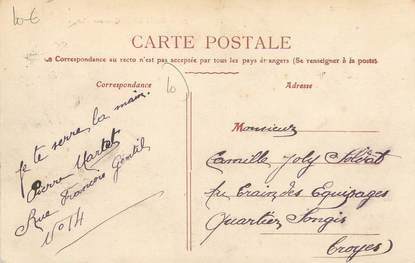 10-€
CARTE POSTALE
La Correspondance au recto n'est pas acceptée par tous les pays étrangers (Se renseigner à la poste)
Correspondance
Adresse
10
Je te serre la main.
Pierre Martet
Rue François Gentil
N° 14
Monsieur
Camille Joly Soldat
au Train des Equipages
Quartier Songis
Troyes